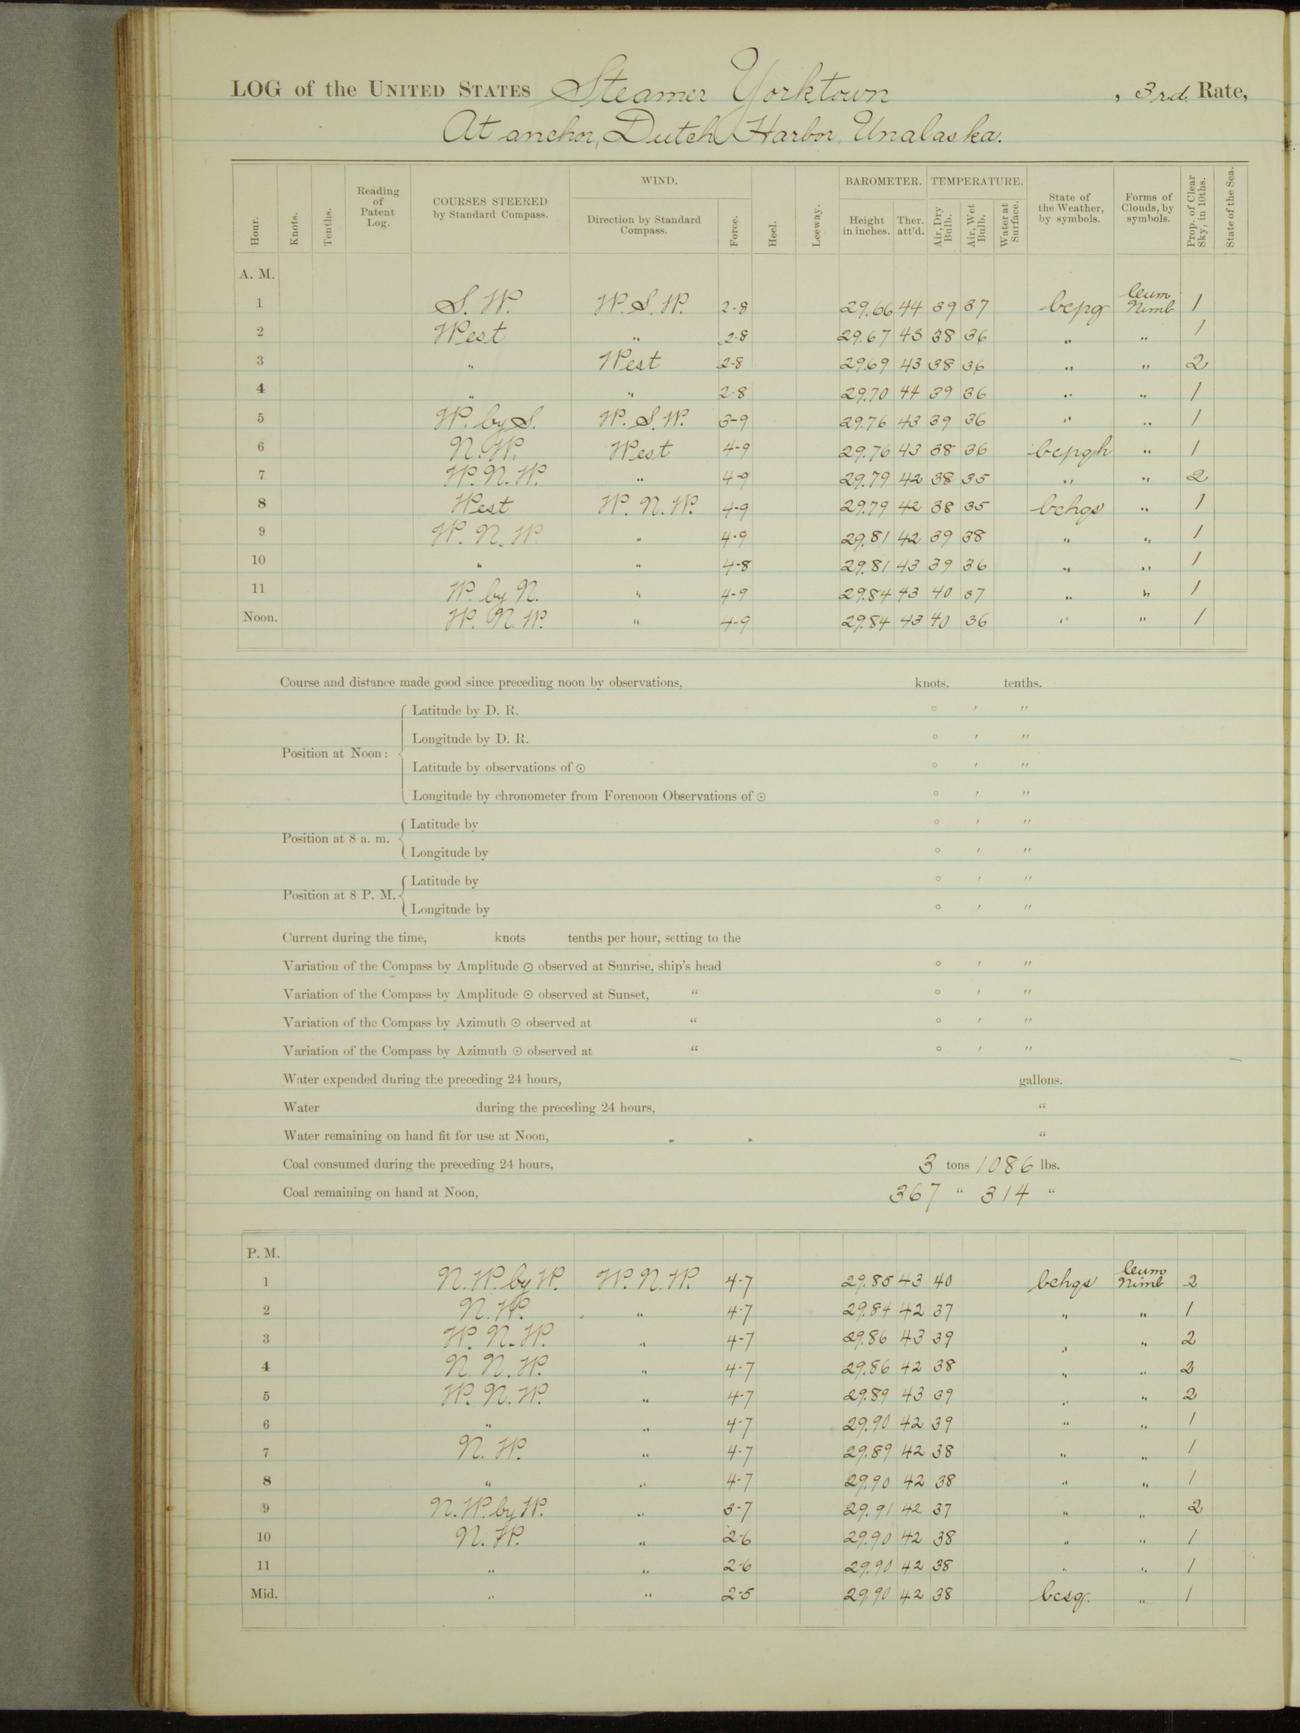 LOG of the UNITED STATES Steamer Yorktown, 3rd. Rate,
At anchor, Dutch Harbor, Unalaska.
Hour. Knots. Tenths. Reading of Patent Log. COURSES STEERED by Standard Compass. WIND. Direction by Standard Compass. Force. Heel. Leeway. BAROMETER. Height in inches. Ther. att'd. TEMPERATURE. Air, Dry Bulb. Air, Wet Bulb. Water at Surface. State of the Weather, by symbols. Forms of Clouds, by symbols. Prop. of Clear Sky, in 10ths. State of the Sea.
A. M.
1 S. W. W. S. W. 2-8 29.66 44 39 37 bcpg Cum Nimb 1
2 West " 2-8 29.67 43 38 36 " " 1
3 " West 2-8 29.69 43 38 36 " " 2
4 " " 2-8 29.70 44 39 36 " " 1
5 W. by S. W. S. W. 3-9 29.76 43 39 36 " " 1
6 N. W. West 4-9 29.76 43 38 36 bcpgh " 1
7 W. N. W. " 4-9 29.79 42 38 35 " " 2
8 West W. N. W. 4-9 29.79 42 38 35 bchgs " 1
9 W. N. W " 4-9 29.81 42 39 38 " " 1
10 " " 4-8 29.81 43 39 36 " " 1
11 W. by N. " 4-9 29.84 43 40 37 " " 1
Noon. W. N. W. " 4-9 29.84 43 40 36 " " 1
Course and distance made good since preceding noon by observations, knots. tenths.
Position at Noon:
Latitude by D. R. ° ′ ″
Longitude by D. R. ° ′ ″
Latitude by observations of ☉ ° ′ ″
Longitude by chronometer from Forenoon Observations of ☉ ° ′ ″
Position at 8 a. m.
Latitude by ° ′ ″
Longitude by ° ′ ″
Position at 8 P. M.
Latitude by ° ′ ″
Longitude by ° ′ ″
Current during the time, knots tenths per hour, setting to the
Variation of the Compass by Amplitude ☉ observed at Sunrise, ship's head ° ′ ″
Variation of the Compass by Amplitude ☉ observed at Sunset, " ° ′ ″
Variation of the Compass by Azimuth ☉ observed at " ° ′ ″
Variation of the Compass by Azimuth ☉ observed at " ° ′ ″
Water expended during the preceding 24 hours, gallons.
Water during the preceding 24 hours, "
Water remaining on hand fit for use at Noon, "
Coal consumed during the preceding 24 hours, 3 tons 1086 lbs.
Coal remaining on hand at Noon, 367 " 314 "
P. M.
1 N. W. by W. W. N. W. 4-7 29.85 43 40 bchgs Cum Nimb 2
2 N. W. " 4-7 29.84 42 37 " " 1
3 W. N. W. " 4-7 29.86 43 39 " " 2
4 N. N. W. " 4-7 29.86 42 38 " " 3
5 W. N. W. " 4-7 29.89 43 39 " " 2
6 " " 4-7 29.90 42 39 " " 1
7 N. W. " 4-7 29.89 42 38 " " 1
8 " " 4-7 29.90 42 38 " " 1
9 N. W. by W. " 3-7 29.91 42 37 " " 2
10 N. W. " 2-6 29.90 42 38 " " 1
11 " " 2-6 29.90 42 38 " " 1
Mid. " " 2-5 29.90 42 38 bcsq. " 1